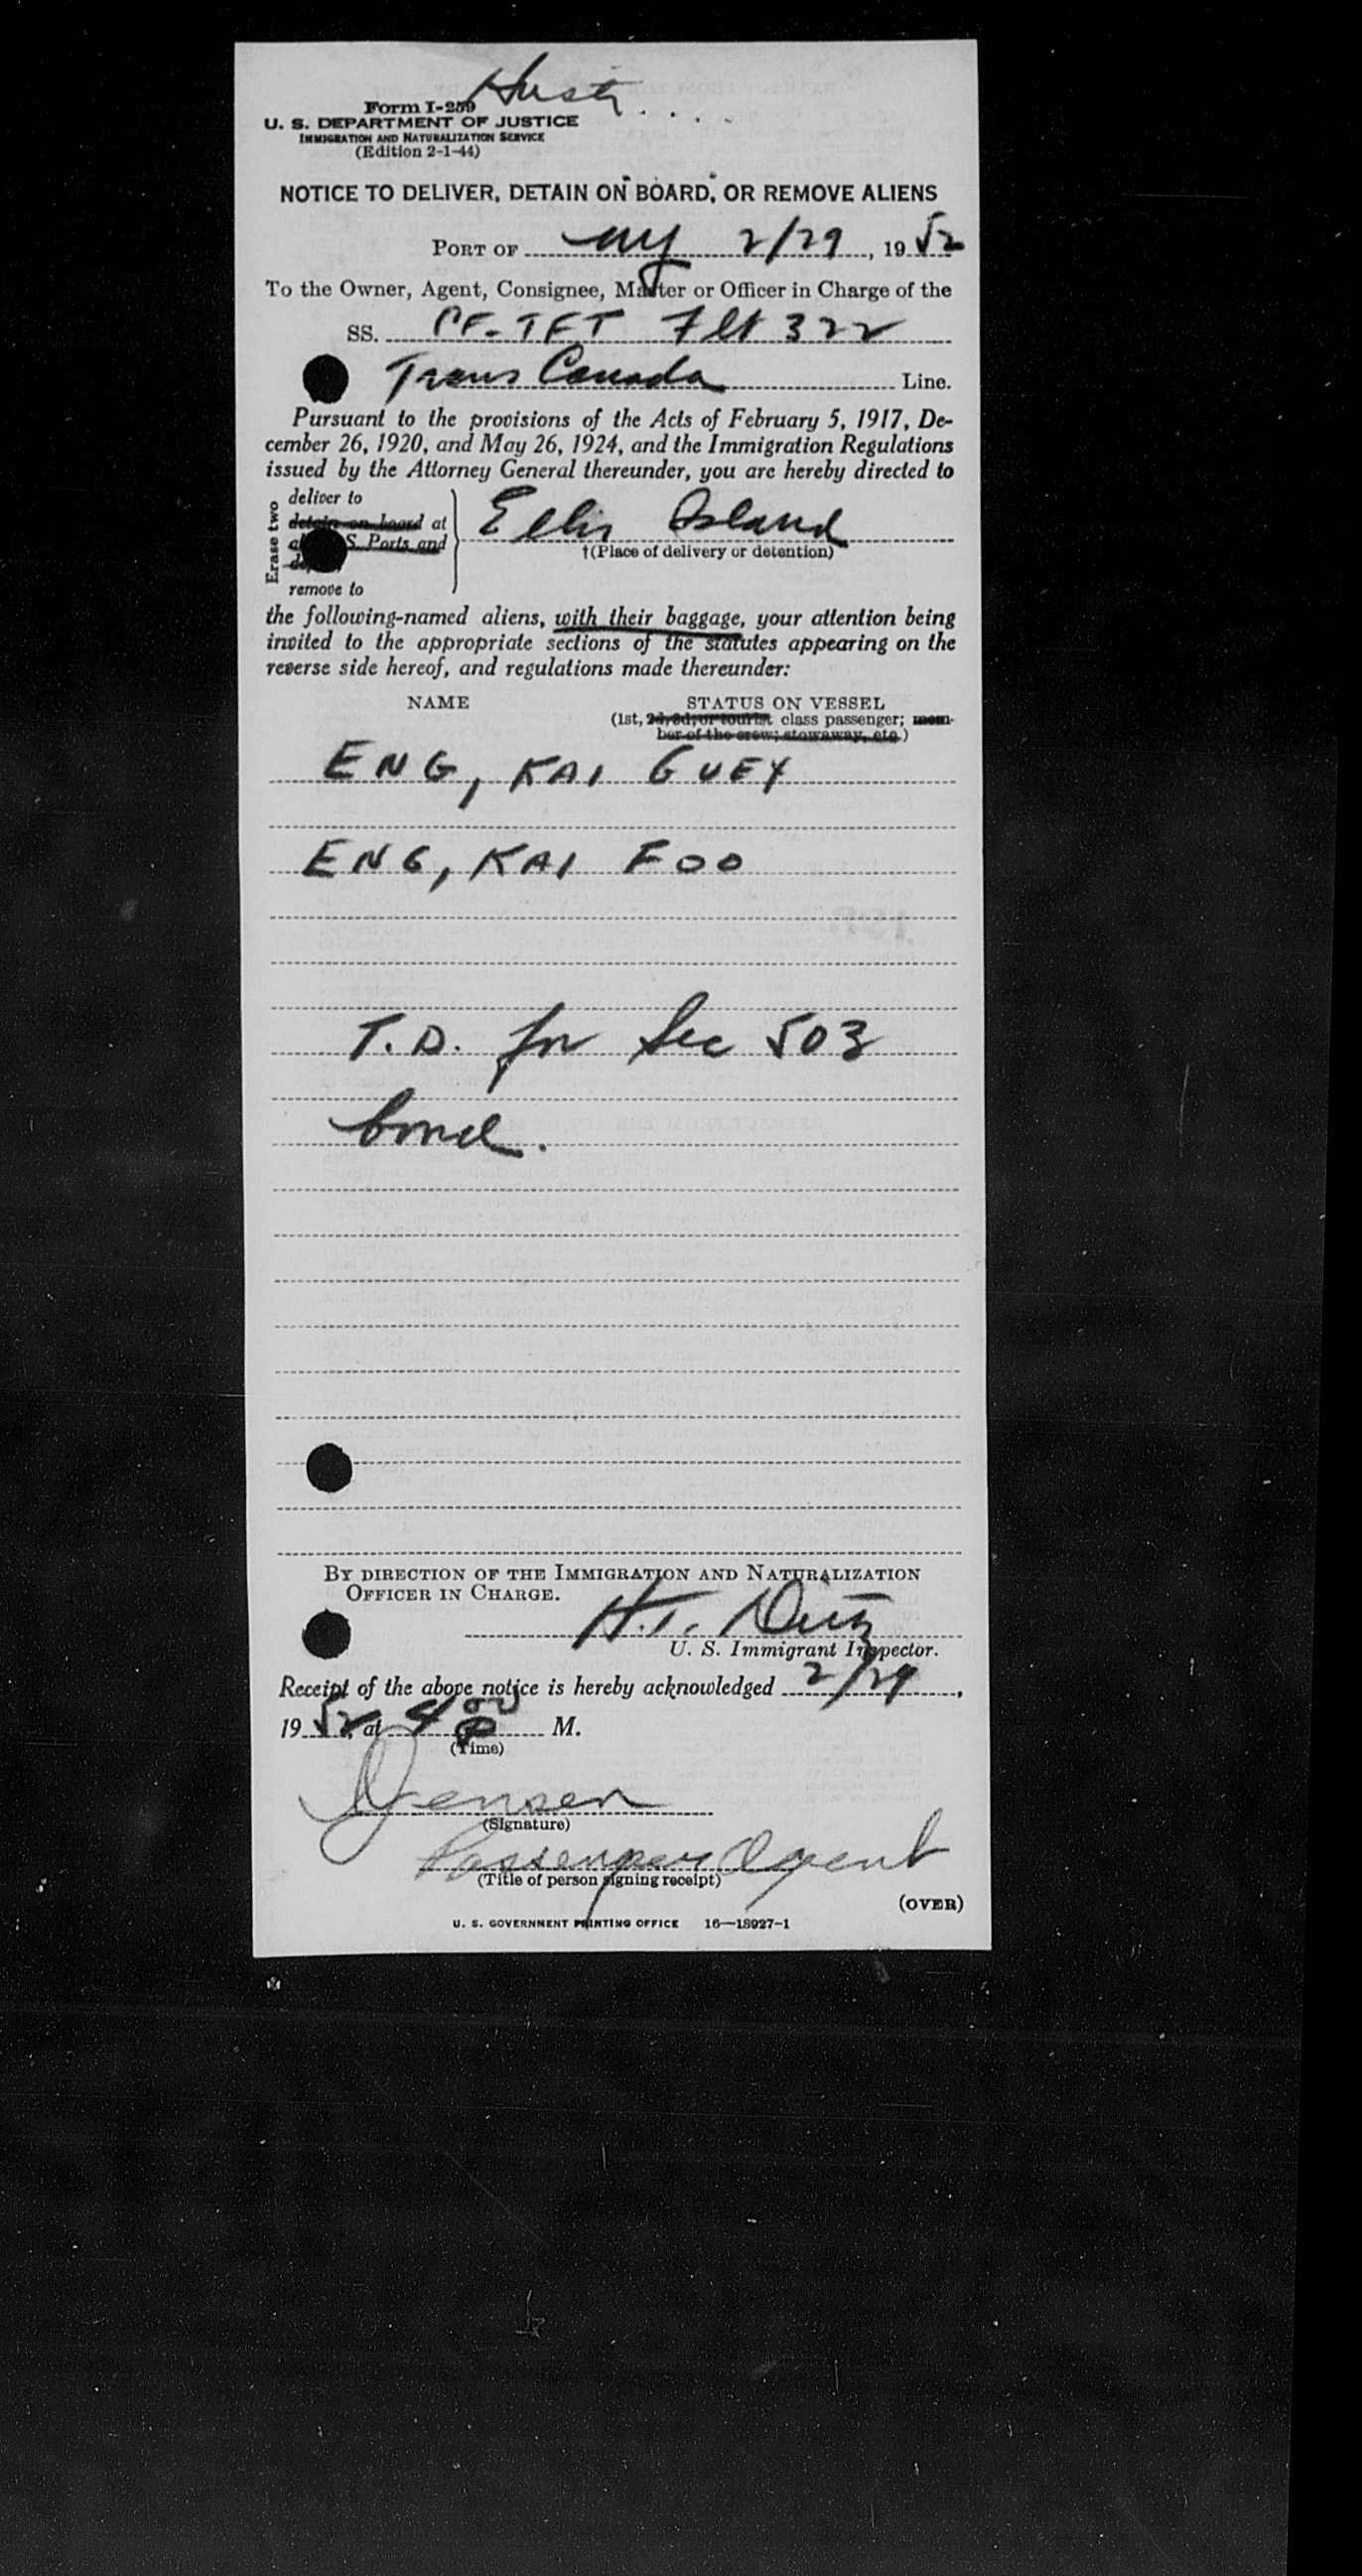 Form I-259
U. S. DEPARTMENT OF JUSTICE
IMMIGRATION AND NATURALIZATION SERVICE
(Edition 2-1-44)
NOTICE TO DELIVER, DETAIN ON BOARD, OR REMOVE ALIENS
PORT OF NY 2/29, 1952
To the Owner, Agent, Consignee, Master or Officer in Charge of the
SS. CF-TFT Flt 322
Trans Canada Line.
Pursuant to the provisions of the Acts of February 5, 1917, De-
cember 26, 1920, and May 26, 1924, and the Immigration Regulations
issued by the Attorney General thereunder, you are hereby directed to
Erase two
deliver to
detain on board at
S. Ports and
remove to
Ellis Island
†(Place of delivery or detention)
the following-named aliens, with their baggage, your attention being
invited to the appropriate sections of the statutes appearing on the
reverse side hereof, and regulations made thereunder:
NAME STATUS ON VESSEL
(1st, 2d, 3d, or tourist class passenger; mem-
ber of the crew; stowaway, etc.)
ENG, KAI GUEY
ENG, KAI FOO
T.D. for Sec 503
bond.
BY DIRECTION OF THE IMMIGRATION AND NATURALIZATION
OFFICER IN CHARGE.
H.T.
U. S. Immigrant Inspector.
Receipt of the above notice is hereby acknowledged 2/29,
1952, at 4 00 P M.
(Time)
Jensen
(Signature)
Passenger Agent
(Title of person signing receipt)
(OVER)
U. S. GOVERNMENT PRINTING OFFICE 16—18927-1